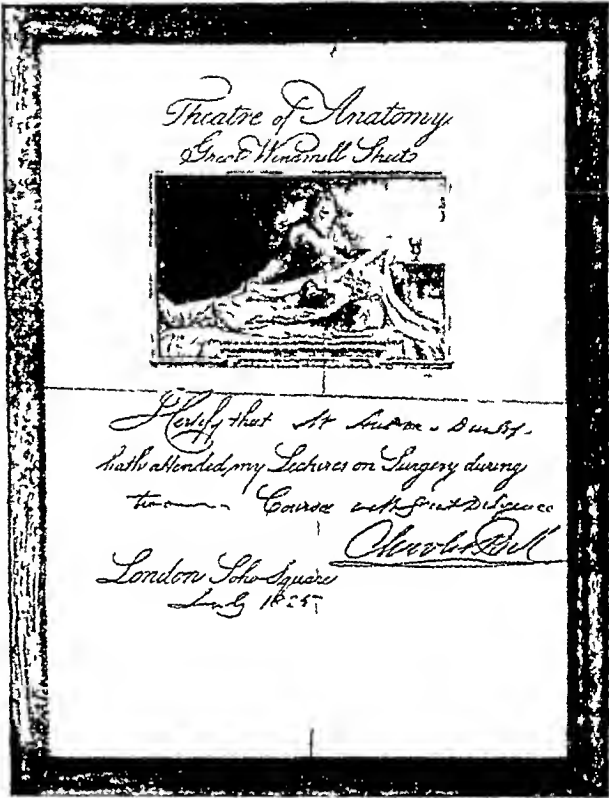 Theatre of Anatomy
Great Windmill Street
I Certify that Mr
hath attended my Lectures on Surgery during
two Courses with great Diligence
Charles Bell
London Soho Square
July 1825